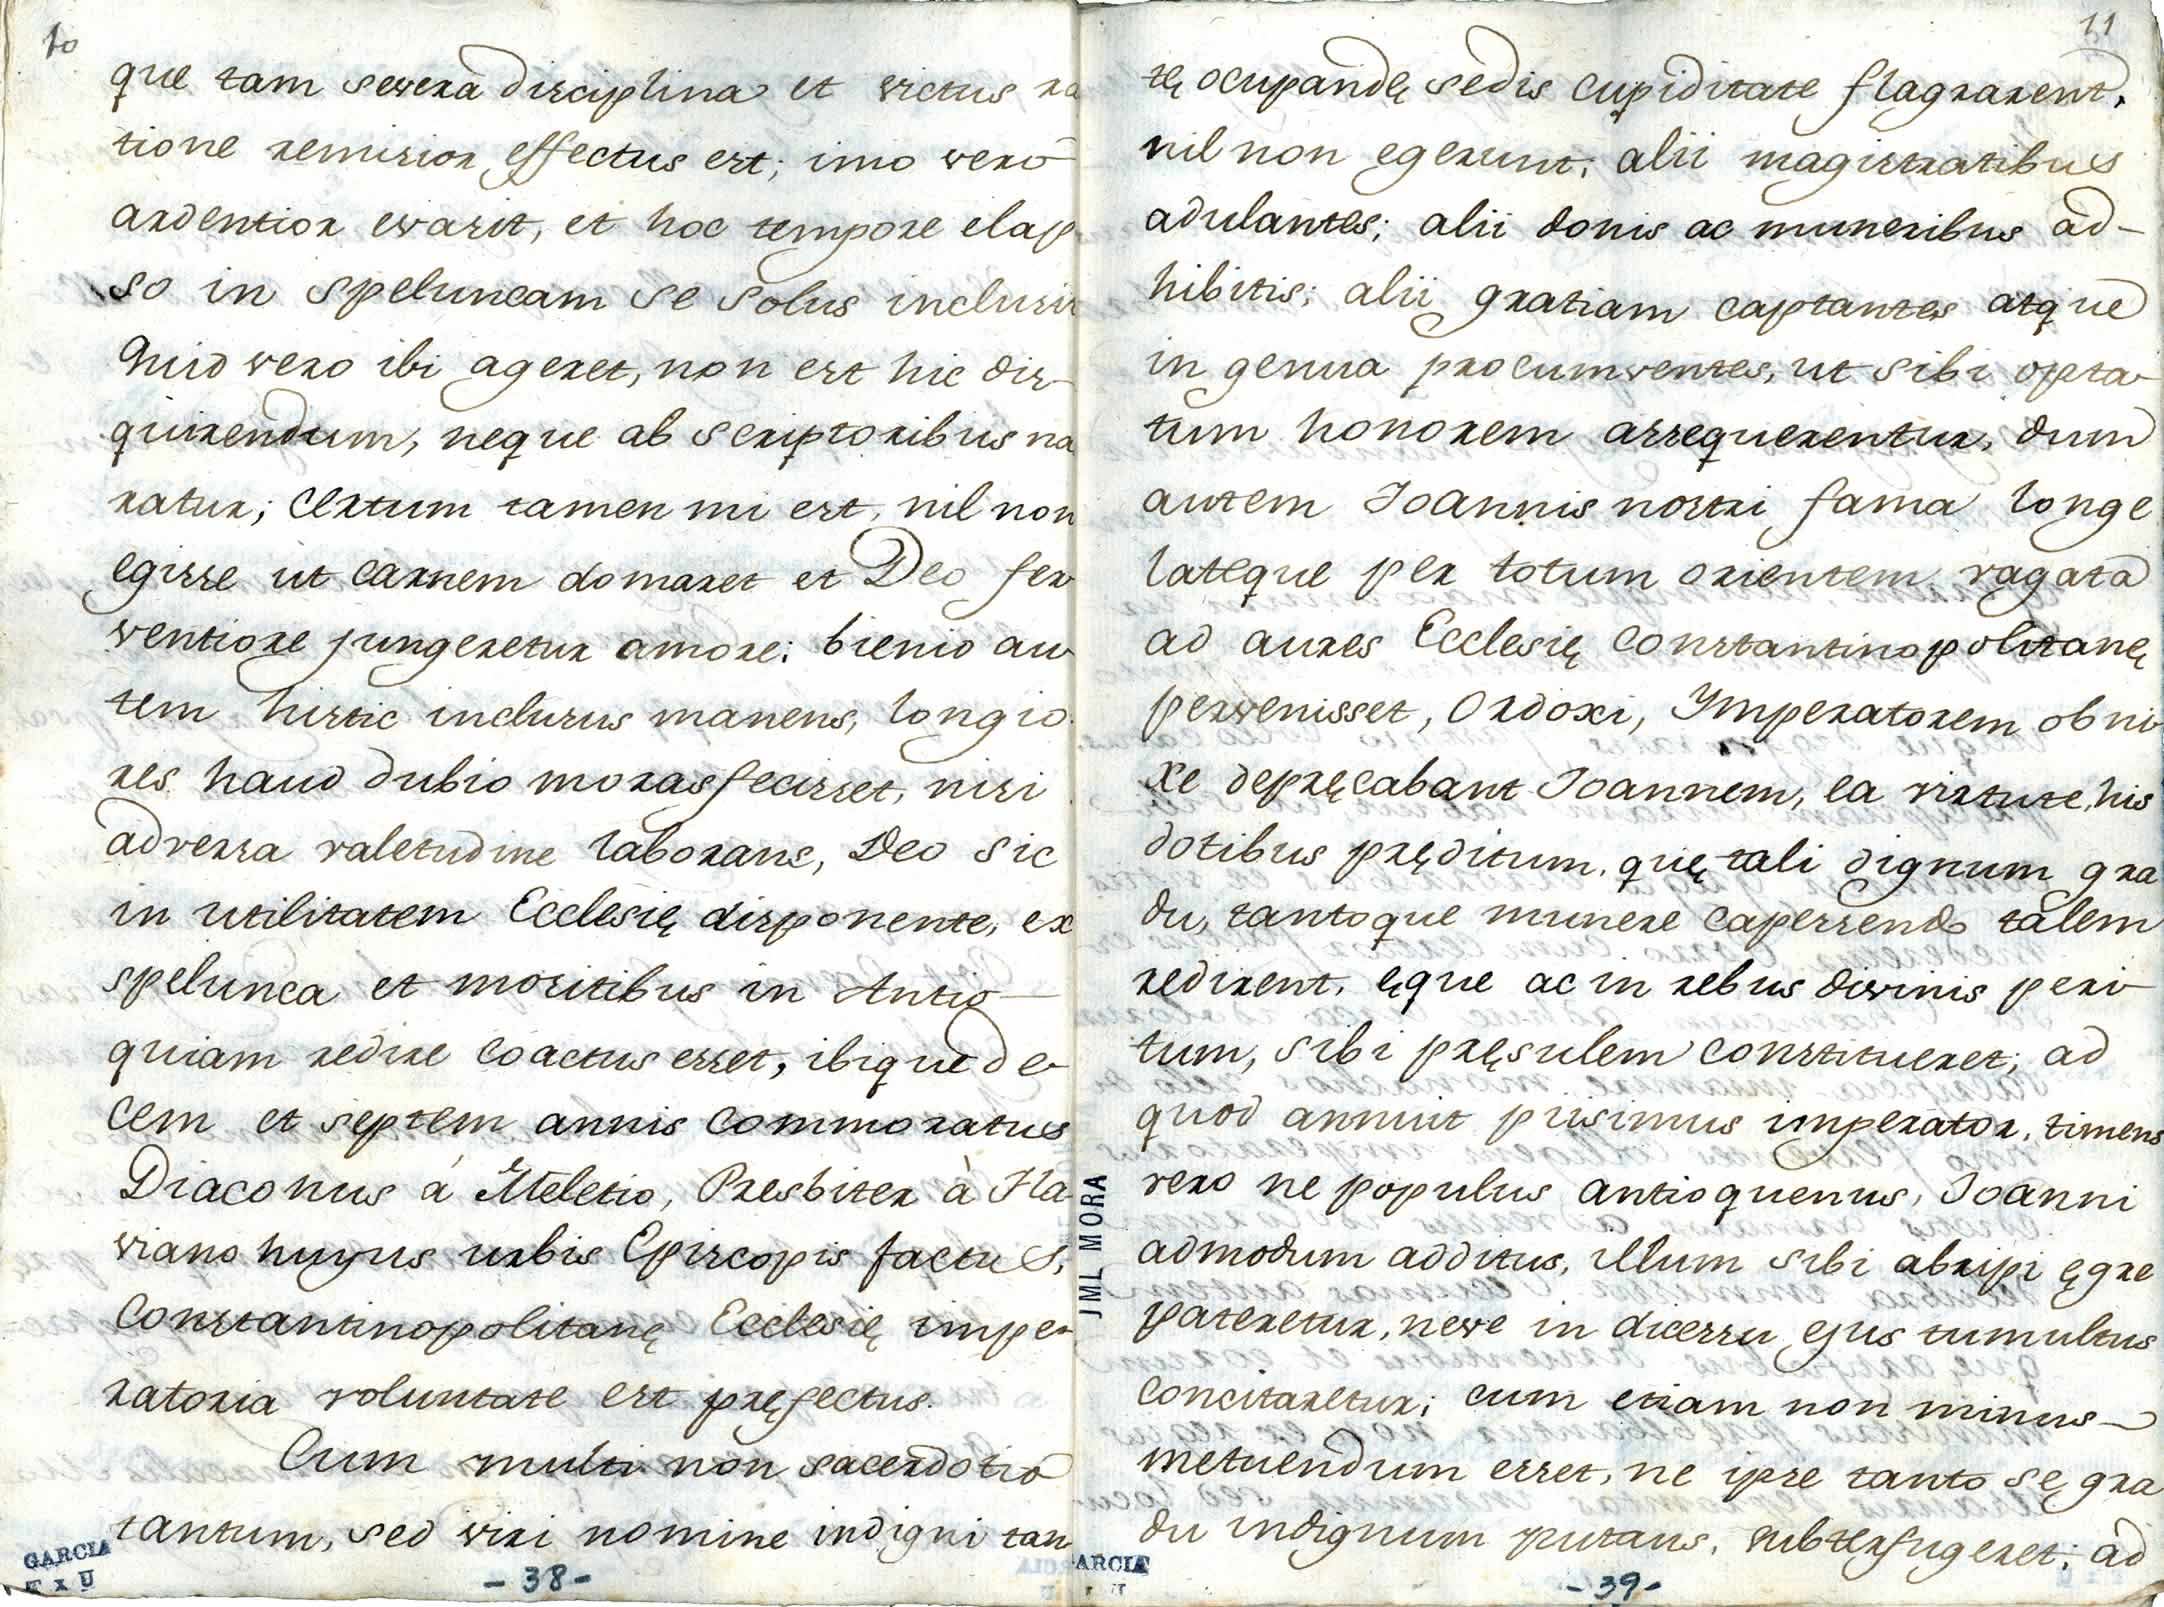 10
que tam severa disciplina et victus ra
tione remisior effectus est; imo vero
ardentior evasit, et hoc tempore elap
so in speluncam se solus inclusit
Quid vero ibi ageret, non est hic dis-
quirendum, neque ab scriptoribus na
ratur; certum tamen mi est, nil non
egisse ut carnem domaret et Deo fer
ventiore jungeretur amore; bienio au
tem histic inclusus manens, longio
res haud dubio moras fecisset, nisi
adversa valetudine laborans, Deo sic
in utilitatem Ecclesię disponente, ex
spelunca et moritibus in Antio-
quiam redire coactus esset, ibique de
cem et septem annis commoratus
Diaconus á Meletio, Presbiter à Fla
viano huyus urbis Episcopis factus,
Constantinopolitanę Ecclesię impe
ratoria voluntate est pręfectus.
Cum multi non sacerdotio
tantum, sed viri nomine indigni tan
GARCIA
- 38 -
11
tę ocupandę sedis cupiditate flagrarent,
nil non egerunt; alii magistratibus
adulantes; alii donis ac muneribus ad-
hibitis; alii gratiam captantes atque
in genua procumventes, ut sibi opta
tum honorem assequerentur, dum
autem Joannis nostri fama longe
lateque per totum orientem vagata
ad aures Ecclesię Constantinopolitanę
pervenisset, Ordoxi, Ymperatorem obni
xe depręcabant Joannem, ea virtute, his
dotibus pręditum, quę tali dignum gra
du, tantoque munere capessendo talem
redirent, ęque ac in rebus divinis peri
tum, sibi pręsulem constitueret; ad
quod annuit piisimus imperator, timens
vero ne populus antioquenus, Joanni
admodum additus, illum sibi abripi ęgre
pateretur, neve in dicessu ejus tumultus
concitaretur; cum etiam non minus-
metuendum esset, ne ipse tanto sę gra
du indignum putans, subterfugeret; ad
JML MORA
ARCIA
- 39 -